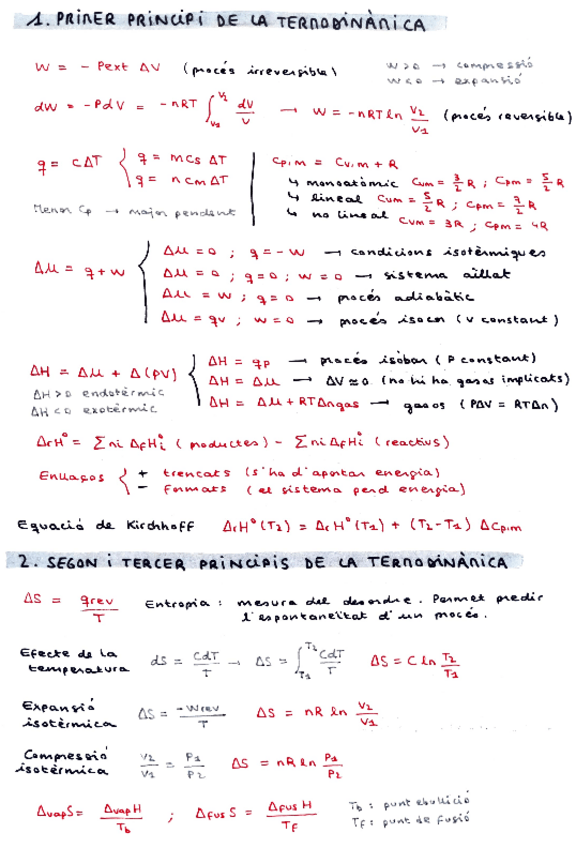 1. PRIMER PRINCIPI DE LA TERMODINÀMICA
W = - Pext ΔV (procés irreversible) W>0 → compressió
W<0 → expansió
dW = -PdV = -nRT ∫_{V1}^{V2} dV/V → W = -nRT ln V2/V1 (procés reversible)
q = CΔT { q = mCs ΔT
q = nCm ΔT
Menor Cp → major pendent
Cp,m = Cv,m + R
↳ monoatòmic Cvm = 3/2 R ; Cpm = 5/2 R
↳ lineal Cvm = 5/2 R ; Cpm = 7/2 R
↳ no lineal Cvm = 3R ; Cpm = 4R
Δu = q + w { Δu = 0 ; q = -w → condicions isotèrmiques
Δu = 0 ; q = 0 ; w = 0 → sistema aïllat
Δu = w ; q = 0 → procés adiabàtic
Δu = qv ; w = 0 → procés isocor (V constant)
ΔH = Δu + Δ(PV) { ΔH = qp → procés isòbar (P constant)
ΔH>0 endotèrmic ΔH = Δu → ΔV ≈ 0 (no hi ha gasos implicats)
ΔH<0 exotèrmic ΔH = Δu + RTΔngas → gasos (PΔV = RTΔn)
ΔrH° = Σni ΔfHi° (productes) - Σni ΔfHi° (reactius)
Enllaços { + trencats (s'ha d'aportar energia)
- formats (el sistema perd energia)
Equació de Kirchhoff ΔrH°(T2) = ΔrH°(T1) + (T2-T1) ΔCp,m
2. SEGON I TERCER PRINCIPIS DE LA TERMODINÀMICA
ΔS = qrev/T Entropia : mesura del desordre. Permet predir
l'espontaneïtat d'un procés.
Efecte de la temperatura dS = CdT/T → ΔS = ∫_{T1}^{T2} CdT/T ΔS = C ln T2/T1
Expansió isotèrmica ΔS = -Wrev/T ΔS = nR ln V2/V1
Compressió isotèrmica V2/V1 = P1/P2 ΔS = nR ln P1/P2
ΔvapS = ΔvapH/Tb ; ΔfusS = ΔfusH/Tf Tb : punt ebullició
Tf : punt de fusió